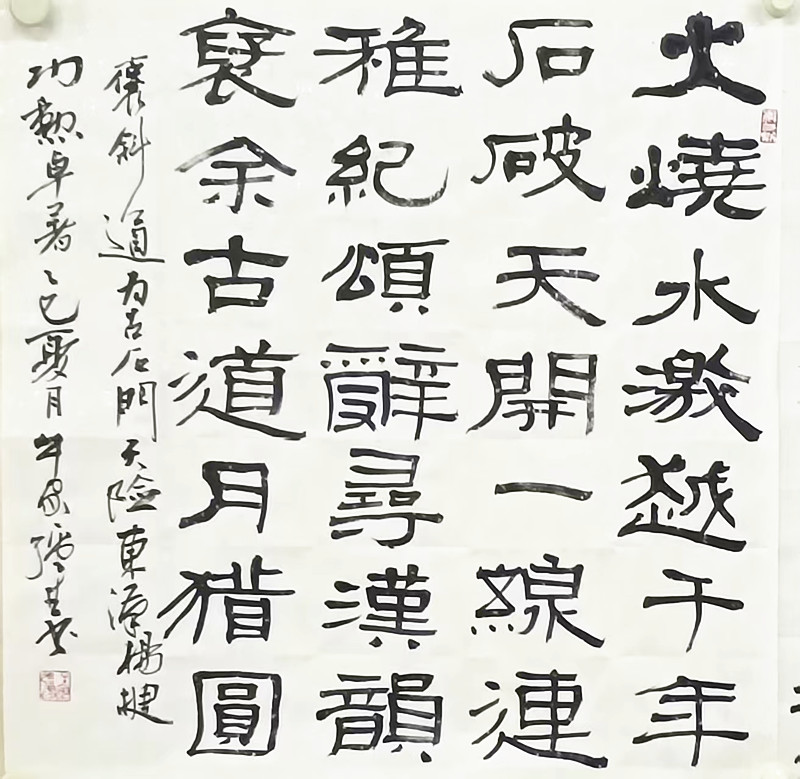 火燒水激越千年
石破天開一線連
雅紀頌辭尋漢韻
褒余古道月猶圓
褒斜道为古石門天險東漢楊楗
功勳卓著乙巳夏月牛生书